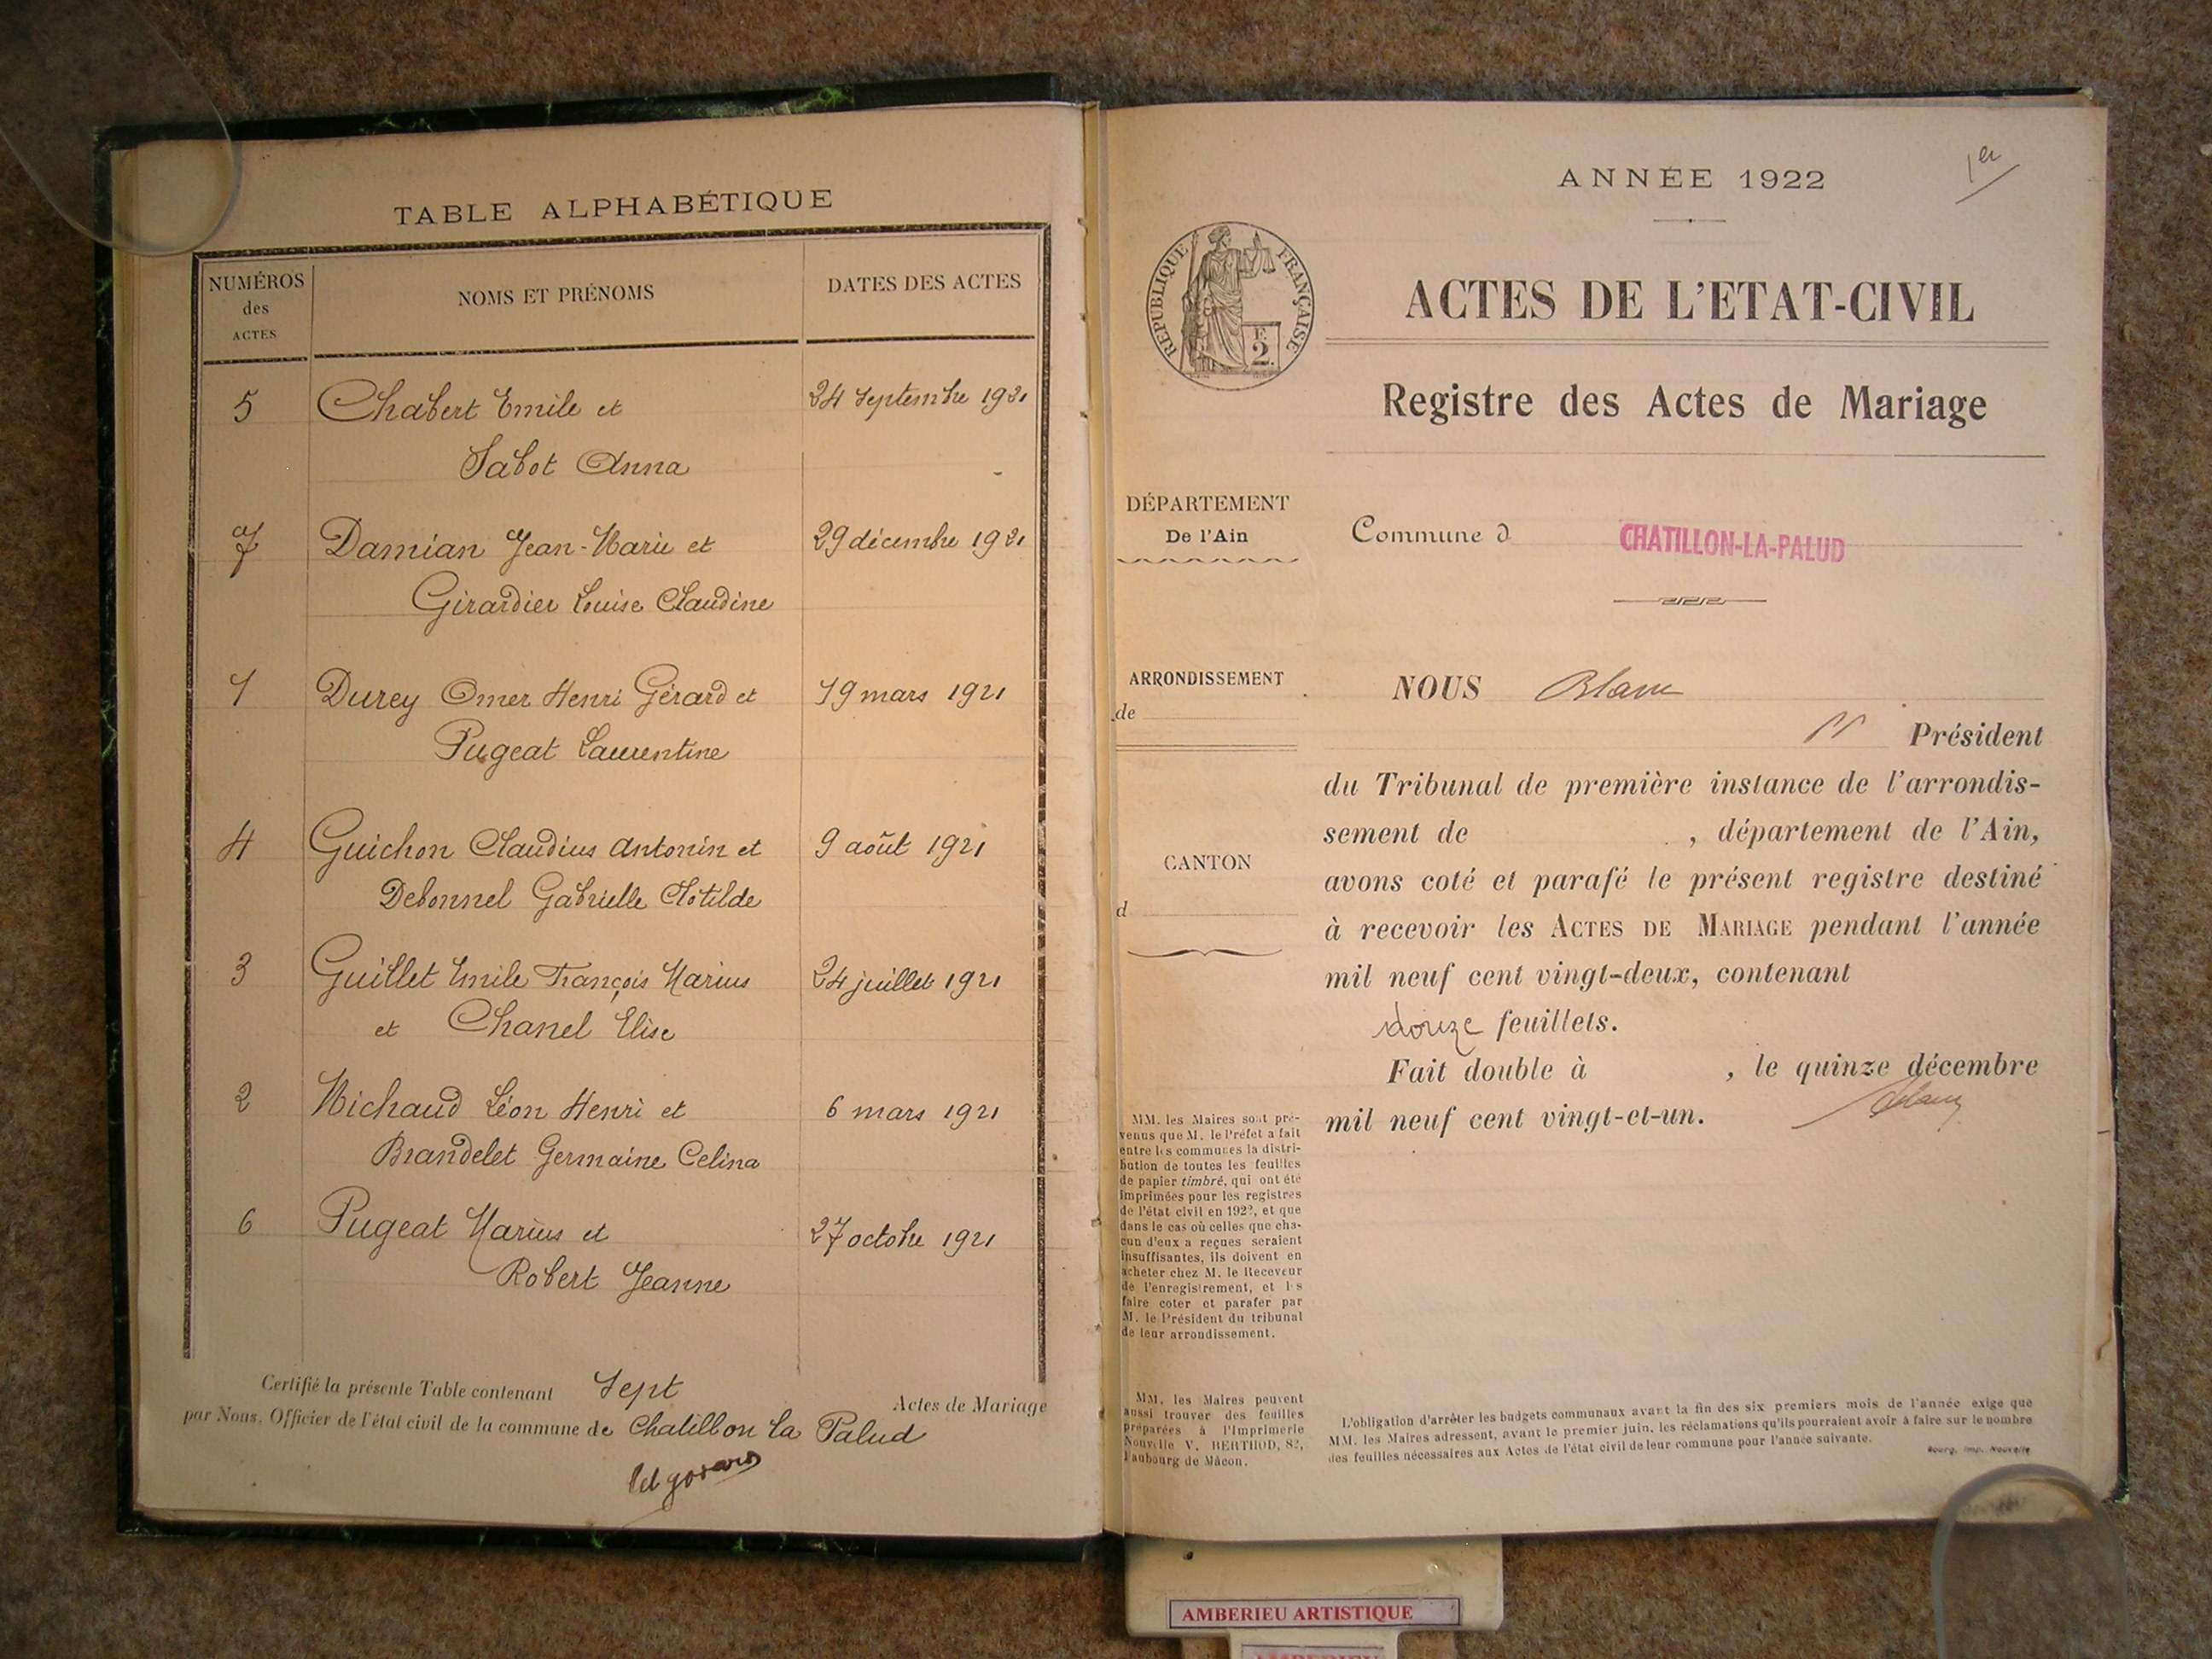 TABLE ALPHABÉTIQUE
NUMÉROS des ACTES NOMS ET PRÉNOMS DATES DES ACTES
5 Chabert Emile et 24 septembre 1921
Sabot Anna
7 Damian Jean-Marie et 29 décembre 1921
Girardier Louise Claudine
1 Durey Omer Henri Gérard et 19 mars 1921
Pugeat Laurentine
4 Guichon Claudius Antonin et 9 août 1921
Debonnel Gabrielle Clotilde
3 Guillet Emile François Marius 24 juillet 1921
et Chanel Elise
2 Michaud Léon Henri et 6 mars 1921
Brandelet Germaine Celina
6 Pugeat Marius et 27 octobre 1921
Robert Jeanne
Certifié la présente Table contenant Sept Actes de Mariage
par Nous, Officier de l'état civil de la commune de Chatillon la Palud
1er
ANNÉE 1922
RÉPUBLIQUE FRANÇAISE
F.
2.
ACTES DE L'ETAT-CIVIL
Registre des Actes de Mariage
DÉPARTEMENT
De l'Ain
Commune d CHATILLON-LA-PALUD
ARRONDISSEMENT
de
CANTON
d
NOUS Blanc
Président
du Tribunal de première instance de l'arrondis-
sement de , département de l'Ain,
avons coté et parafé le présent registre destiné
à recevoir les ACTES DE MARIAGE pendant l'année
mil neuf cent vingt-deux, contenant
douze feuillets.
Fait double à , le quinze décembre
mil neuf cent vingt-et-un.
Blanc
MM. les Maires sont pré-
venus que M. le Préfet a fait
entre les communes la distri-
bution de toutes les feuilles
de papier timbré, qui ont été
imprimées pour les registres
de l'état civil en 1922, et que
dans le cas où celles que cha-
cun d'eux a reçues seraient
insuffisantes, ils doivent en
acheter chez M. le Receveur
de l'enregistrement, et les
faire coter et parafer par
M. le Président du tribunal
de leur arrondissement.
MM. les Maires peuvent
aussi trouver des feuilles
préparées à l'Imprimerie
Nouvelle V. BERTHOD, 82,
Faubourg de Mâcon.
L'obligation d'arrêter les budgets communaux avant la fin des six premiers mois de l'année exige que
MM. les Maires adressent, avant le premier juin, les réclamations qu'ils pourraient avoir à faire sur le nombre
des feuilles nécessaires aux Actes de l'état civil de leur commune pour l'année suivante.
Bourg, Imp. Nouvelle
AMBERIEU ARTISTIQUE
AMBERIEU